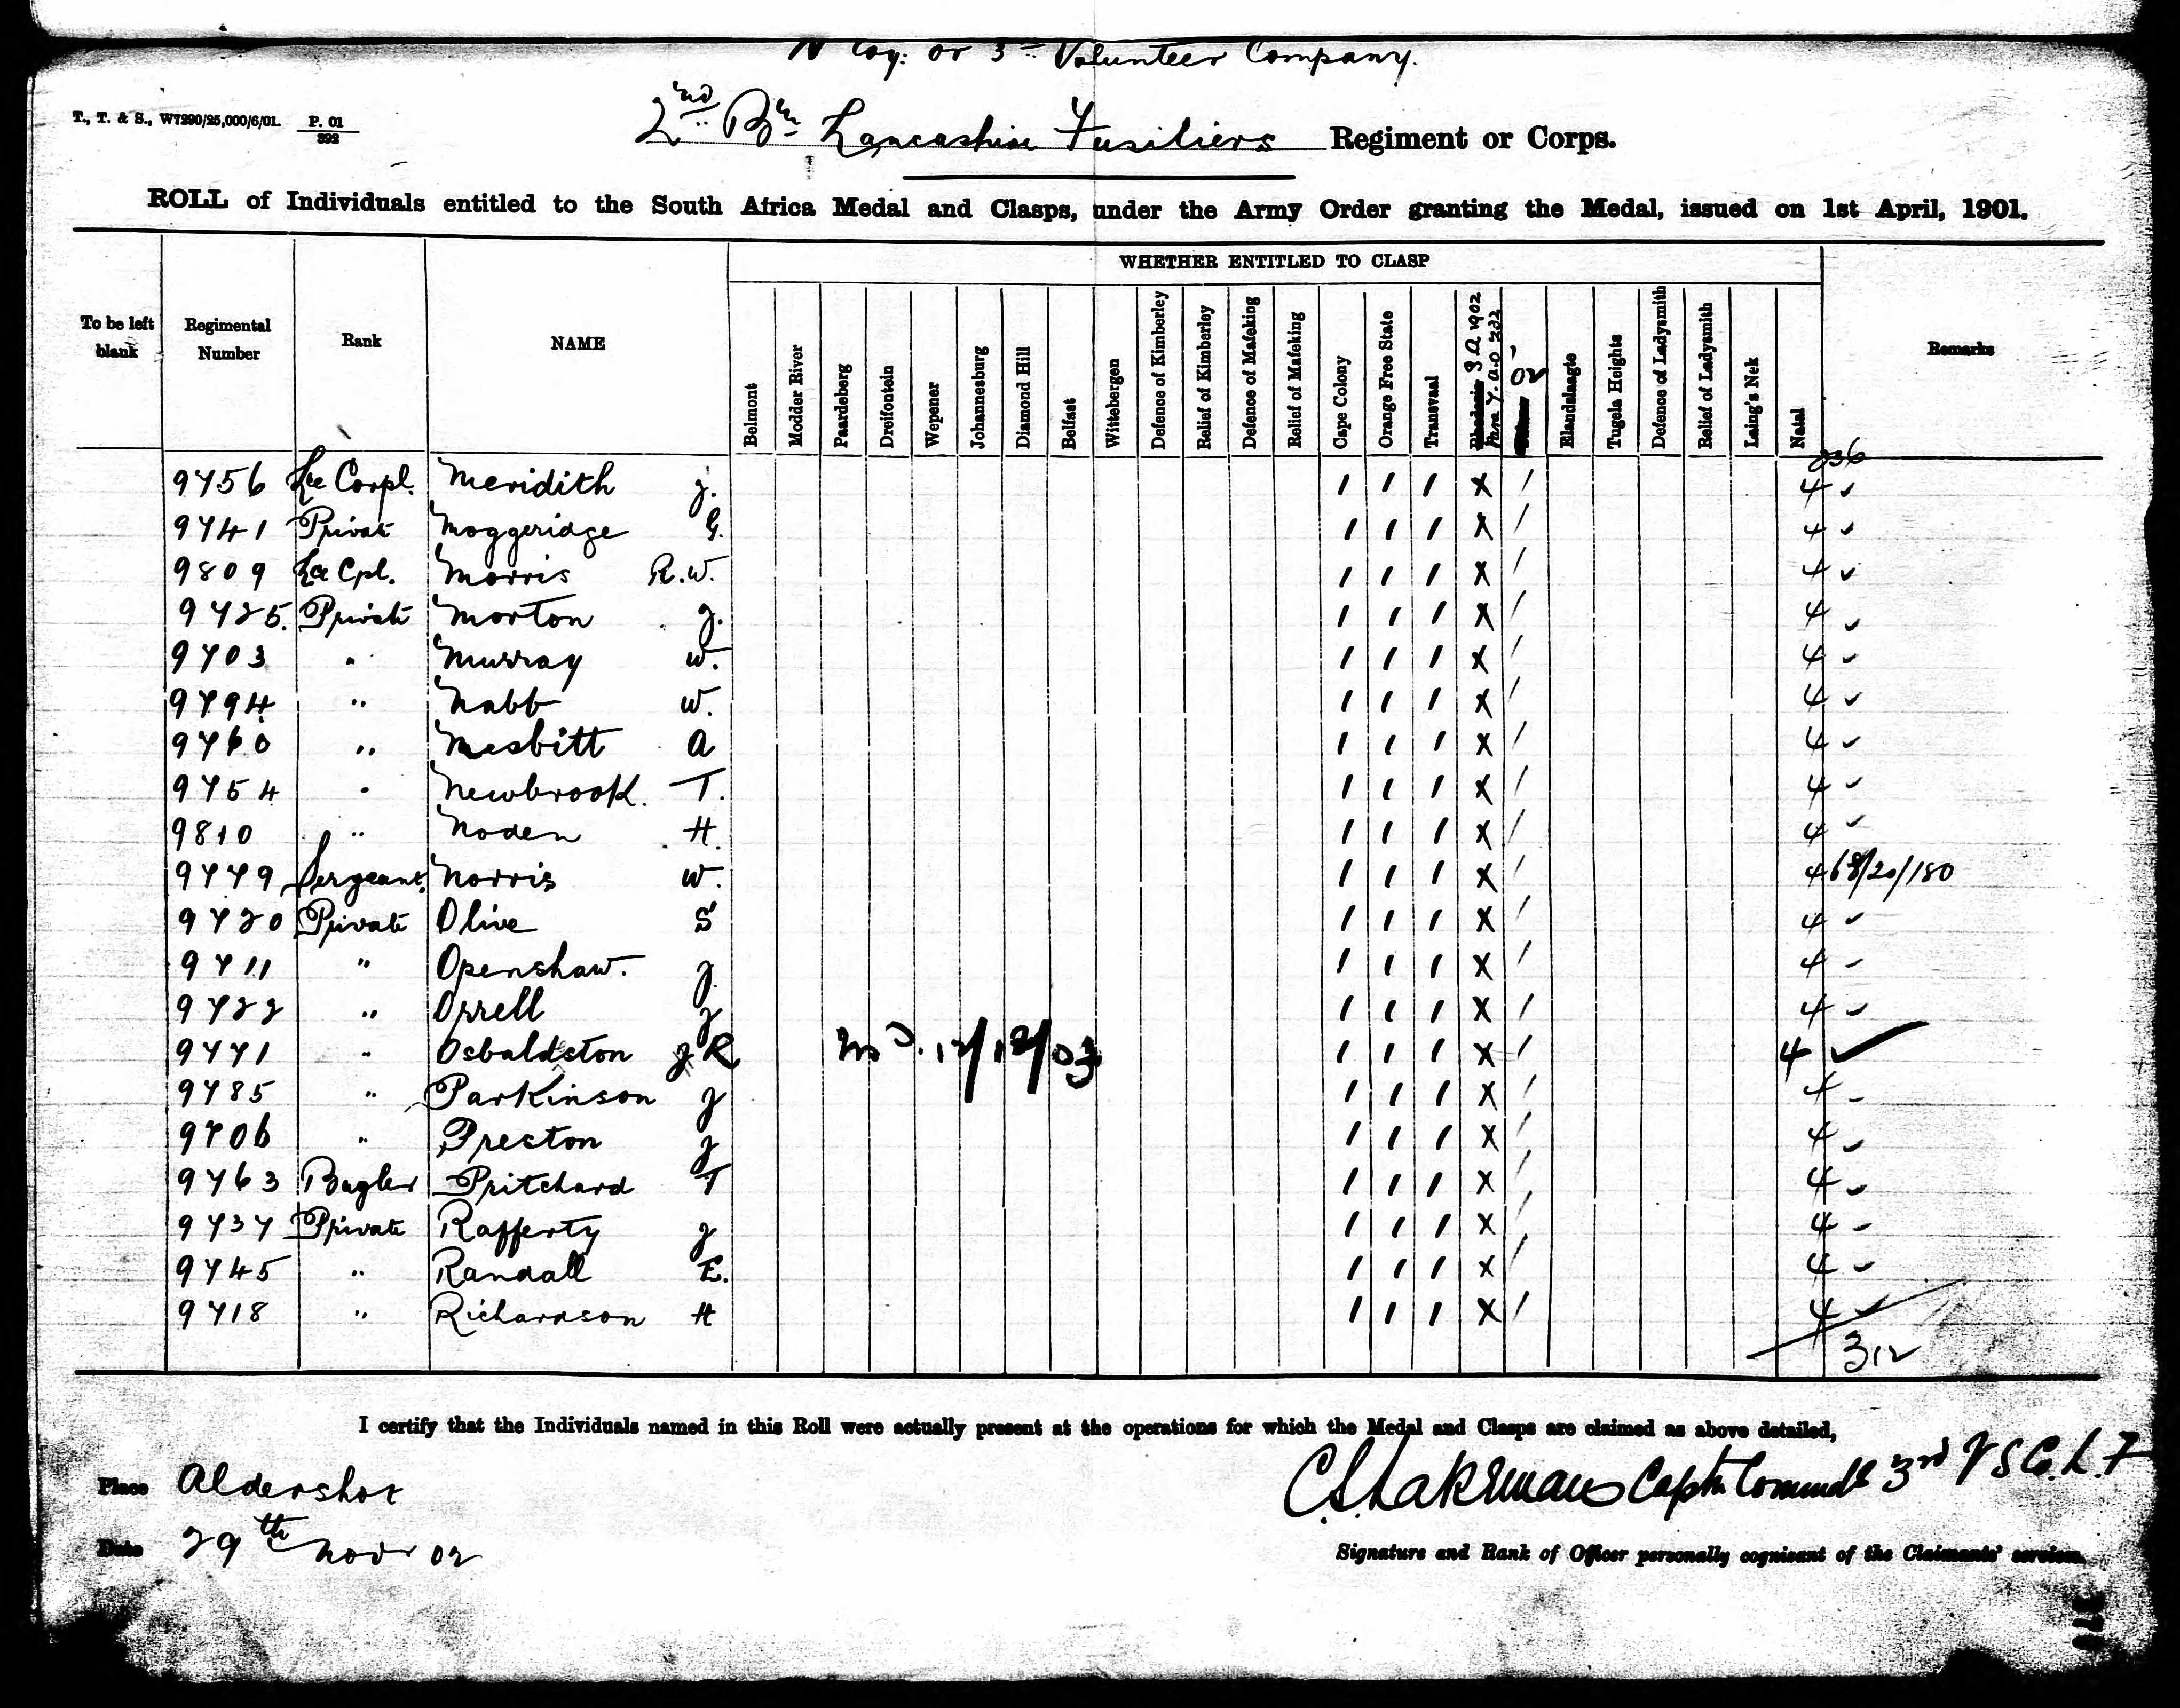 N Coy: or 3rd Volunteer Company.
T., T. & S., W7290/25,000/6/01. P. 01/392
2nd Bn Lancashire Fusiliers Regiment or Corps.
ROLL of Individuals entitled to the South Africa Medal and Clasps, under the Army Order granting the Medal, issued on 1st April, 1901.
WHETHER ENTITLED TO CLASP
To be left blank Regimental Number Rank NAME Belmont Modder River Paardeberg Dreifontein Wepener Johannesburg Diamond Hill Belfast Wittebergen Defence of Kimberley Relief of Kimberley Defence of Mafeking Relief of Mafeking Cape Colony Orange Free State Transvaal Rhodesia S.A 1902 02 Elandslaagte Tugela Heights Defence of Ladysmith Relief of Ladysmith Laing's Nek Natal Remarks
236
9756 Lce Corpl. Meridith J. 1 1 1 X / 4 ✓
9741 Private Moggeridge G. 1 1 1 X / 4 ✓
9809 Lce Cpl. Morris R.W. 1 1 1 X / 4 ✓
9725. Private Morton J. 1 1 1 X / 4 ✓
9703 " Murray W. 1 1 1 X / 4 ✓
9794 " Nabb W. 1 1 1 X / 4 ✓
9760 " Nesbitt A 1 1 1 X / 4 ✓
9754 " Newbrook. T. 1 1 1 X / 4 ✓
9810 " Noden H. 1 1 1 X / 4 ✓
9779 Sergeant. Norris W. 1 1 1 X / 4 68/20/180
9720 Private Olive S 1 1 1 X / 4 ✓
9711 " Openshaw. J. 1 1 1 X / 4 ✓
9722 " Orrell J 1 1 1 X / 4 ✓
9771 " Osbaldston J R 12/12/03 1 1 1 X / 4 ✓
9785 " Parkinson J 1 1 1 X / 4 ✓
9706 " Preston J 1 1 1 X / 4 ✓
9763 Bugler Pritchard T 1 1 1 X / 4 ✓
9737 Private Rafferty J 1 1 1 X / 4 ✓
9745 " Randall E. 1 1 1 X / 4 ✓
9718 " Richardson H 1 1 1 X / 4 ✓
312
I certify that the Individuals named in this Roll were actually present at the operations for which the Medal and Clasps are claimed as above detailed,
Place Aldershot
Captn Commdg 3rd V S Co. L. F
Date 29th Novr 02
Signature and Rank of Officer personally cognisant of the Claimants' services.